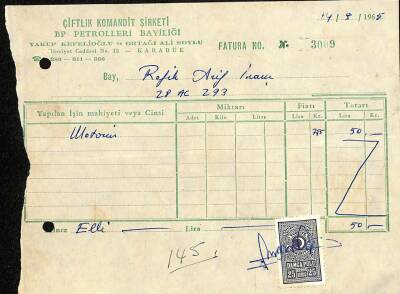 ÇİFTLİK KOMANDİT ŞİRKETİ
BP PETROLLERİ BAYİLİĞİ
YAKUP KEFELİOĞLU ve ORTAĞI ALİ SOYLU
Hürriyet Caddesi No. 12 — KARABÜK
14/9/1965
FATURA NO. № 3009
Bay, Refik Arif
28 AC 293
Yapılan İşin mahiyeti veya Cinsi
Miktarı
Fiatı
Tutarı
Adet Kilo Litre Lira Kr. Lira Kr.
Motorin 50.-
Elli Lira 50.-
145
DAMGA PULU
25 25